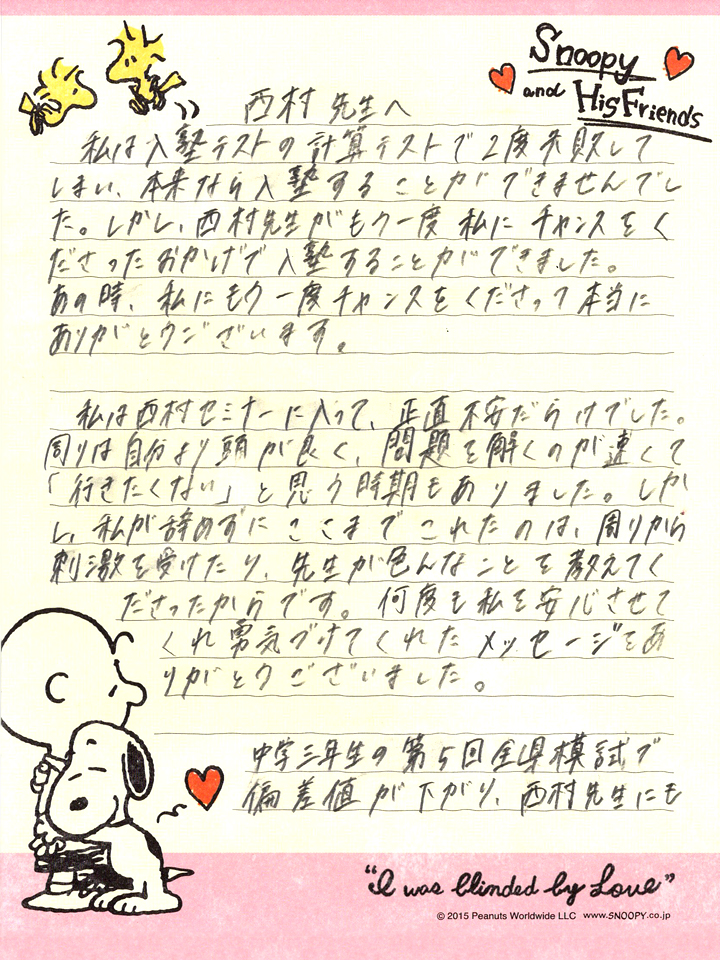 Snoopy
and His Friends
西村 先生へ
私は入塾テストの計算テストで2度失敗して
しまい、本来なら入塾することができませんでし
た。しかし、西村先生がもう一度私にチャンスをく
ださったおかげで入塾することができました。
あの時、私にもう一度チャンスをくださって本当に
ありがとうございます。
私は西村セミナーに入って、正直不安だらけでした。
周りは自分より頭が良く、問題を解くのが速くて
「行きたくない」と思う時期もありました。しか
し、私が辞めずにここまでこれたのは、周りから
刺激を受けたり、先生が色んなことを教えてく
ださったからです。何度も私を安心させて
くれ勇気づけてくれたメッセージをあ
りがとうございました。
中学三年生の第5回全県模試で
偏差値が下がり、西村先生にも
"I was blinded by Love"
© 2015 Peanuts Worldwide LLC www.SNOOPY.co.jp